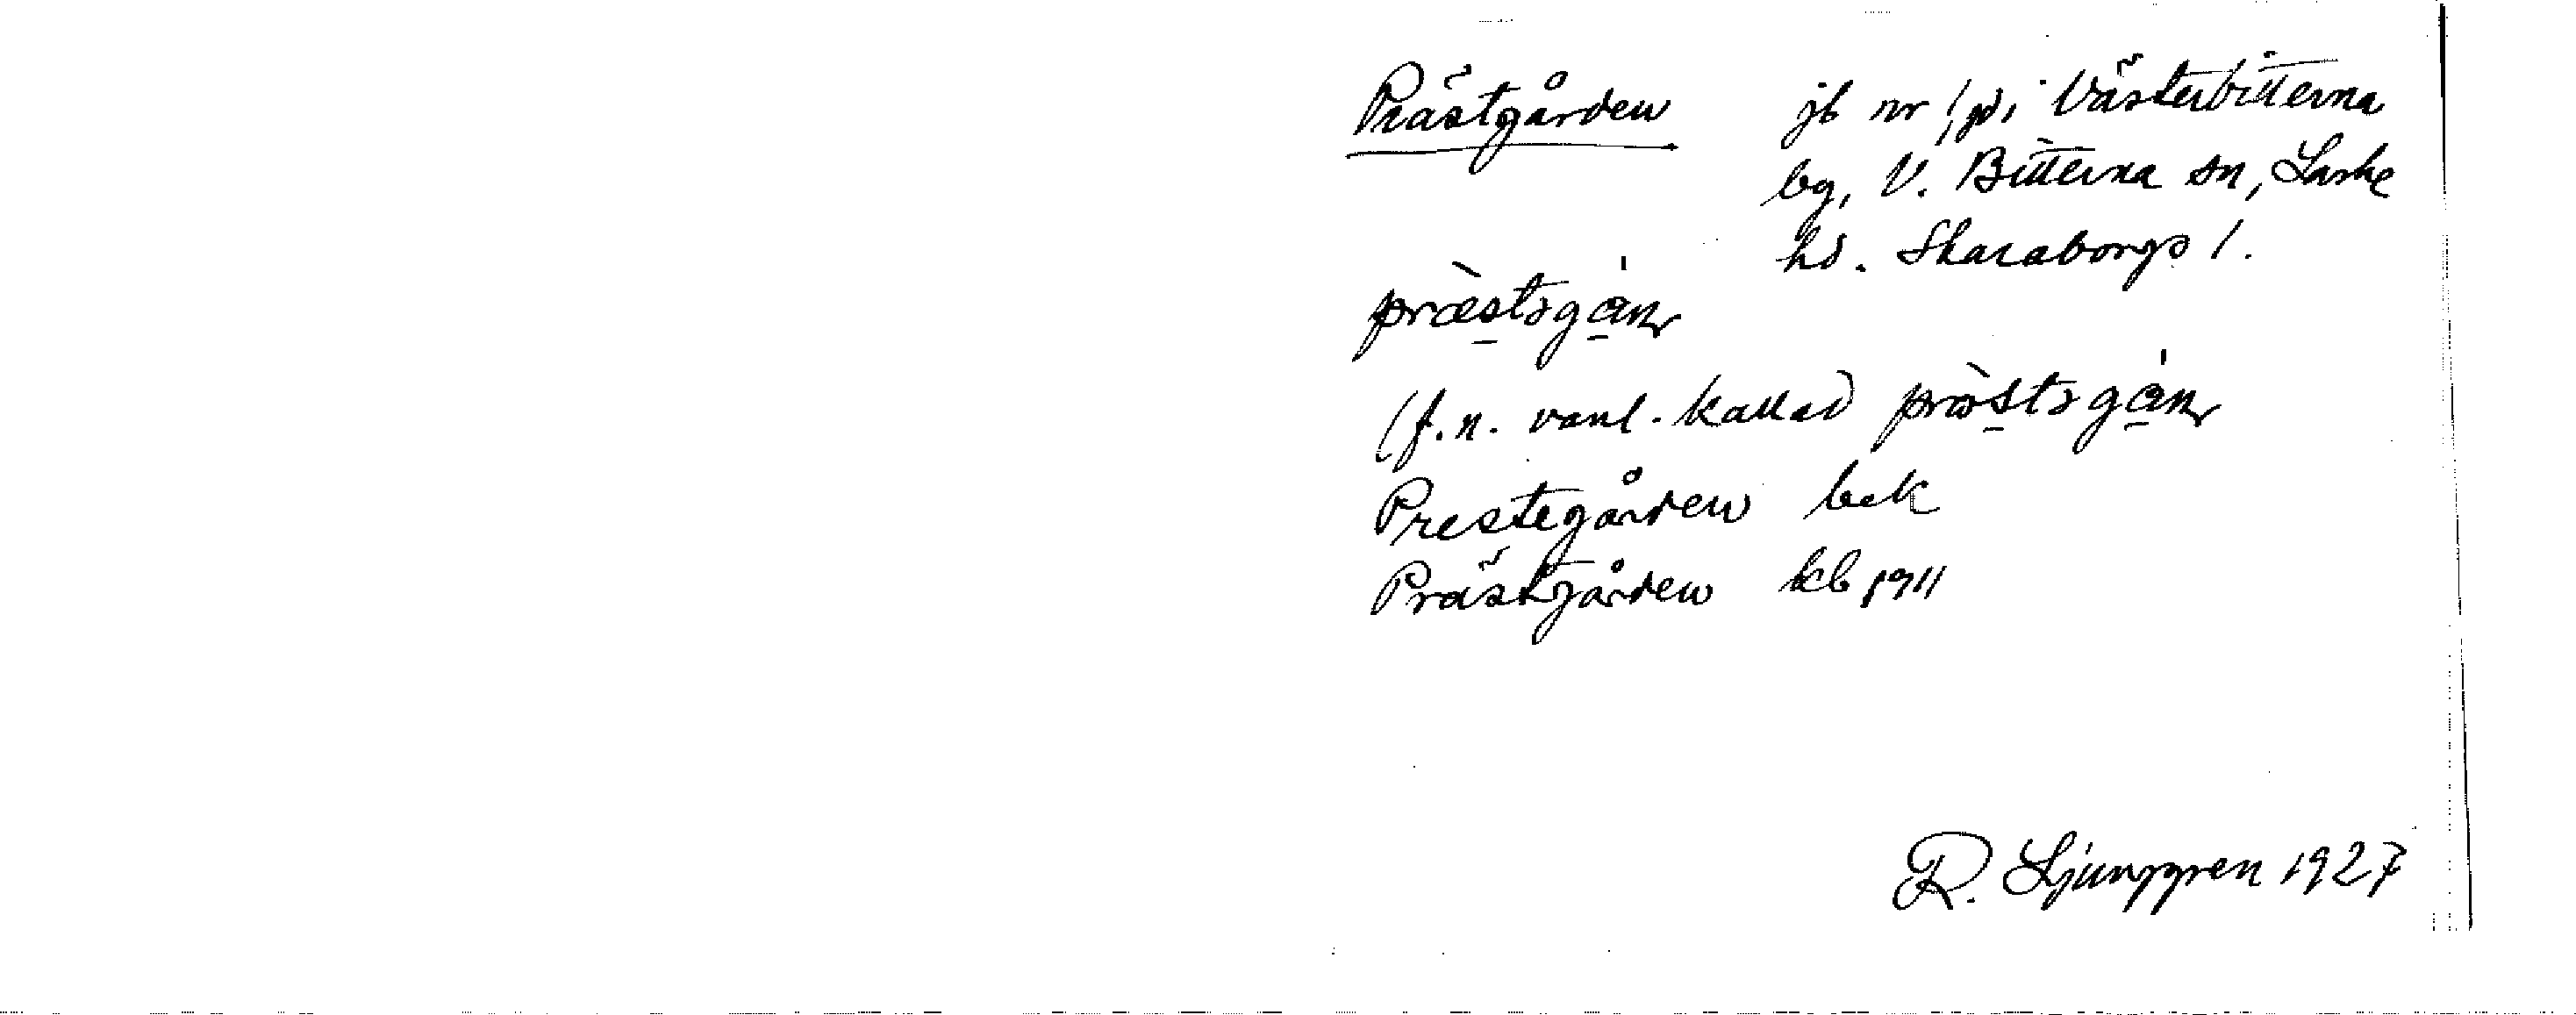 Prästgården jb nr 1, i Västerbitterna
bg, V. Bitterna sn, Laske
hd. Skaraborgs l.
præstəgán
(f.n. vanl. kallad præstəgán
Prestegården bek
Prästgården kb 1911
R. Ljunggren 1927